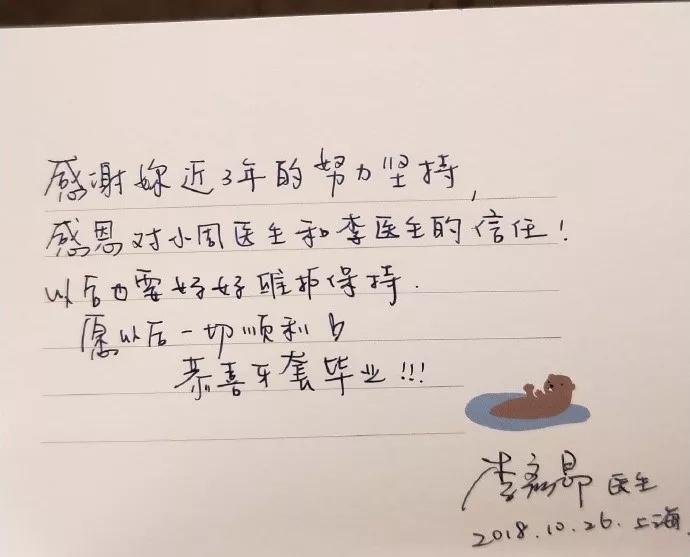 感谢妳近3年的努力坚持,
感恩对小周医生和李医生的信任!
以后也要好好维护保持.
愿以后一切顺利
恭喜牙套毕业!!!
李 医生
2018.10.26.上海